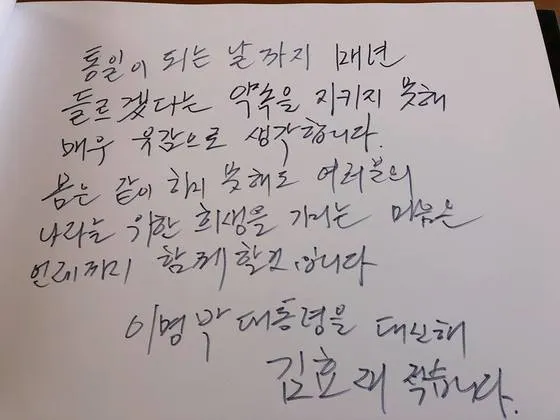 통일이 되는 날까지 매년
들르겠다는 약속을 지키지 못해
매우 유감으로 생각합니다.
몸은 같이 하지 못해도 여러분의
나라를 위한 희생을 기리는 마음은
언제까지 함께 할것입니다
이명박 대통령을 대신해
김효재 적습니다.